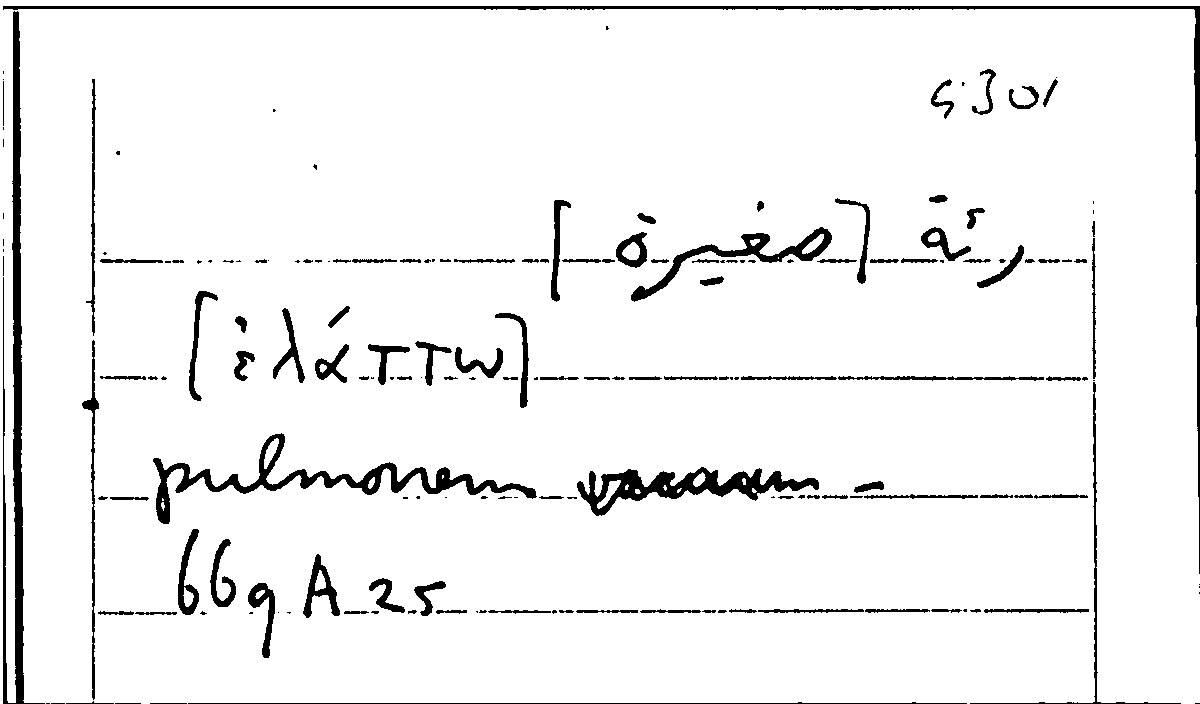 5301
رئة [صغيرة]
[ἐλάττω]
pulmonem –
669 A 25